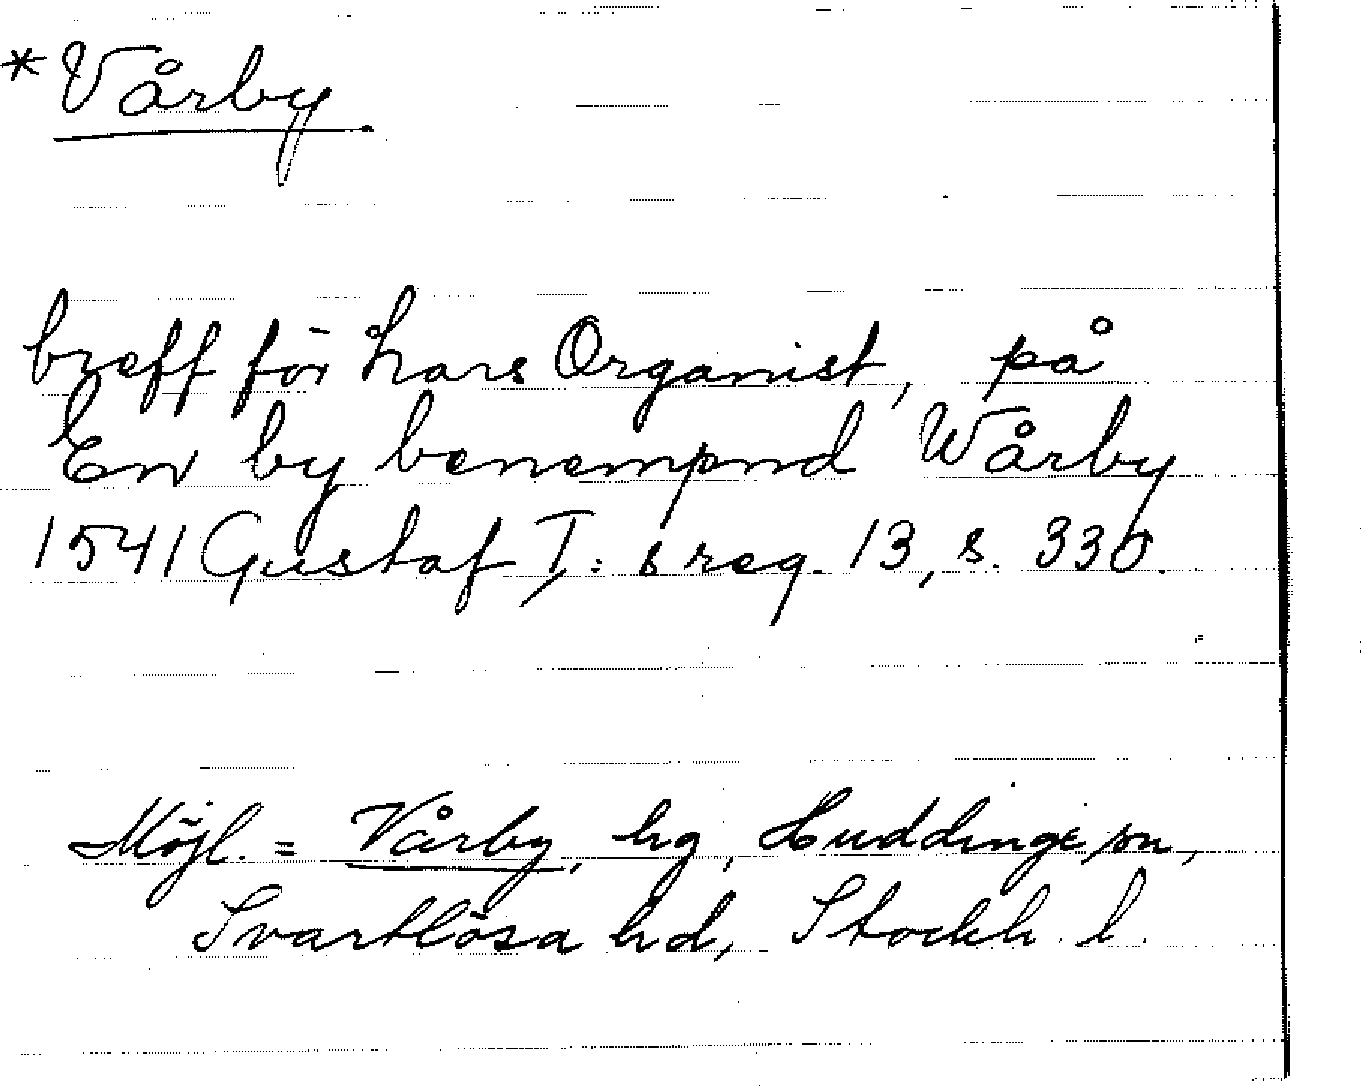 *Vårby
breff för Lars Organist, på
En by benempnd Wårby
1541 Gustaf I: s reg. 13, s. 330.
Möjl. = Vårby, hg, Huddinge sn,
Svartlösa hd, Stockh. l.